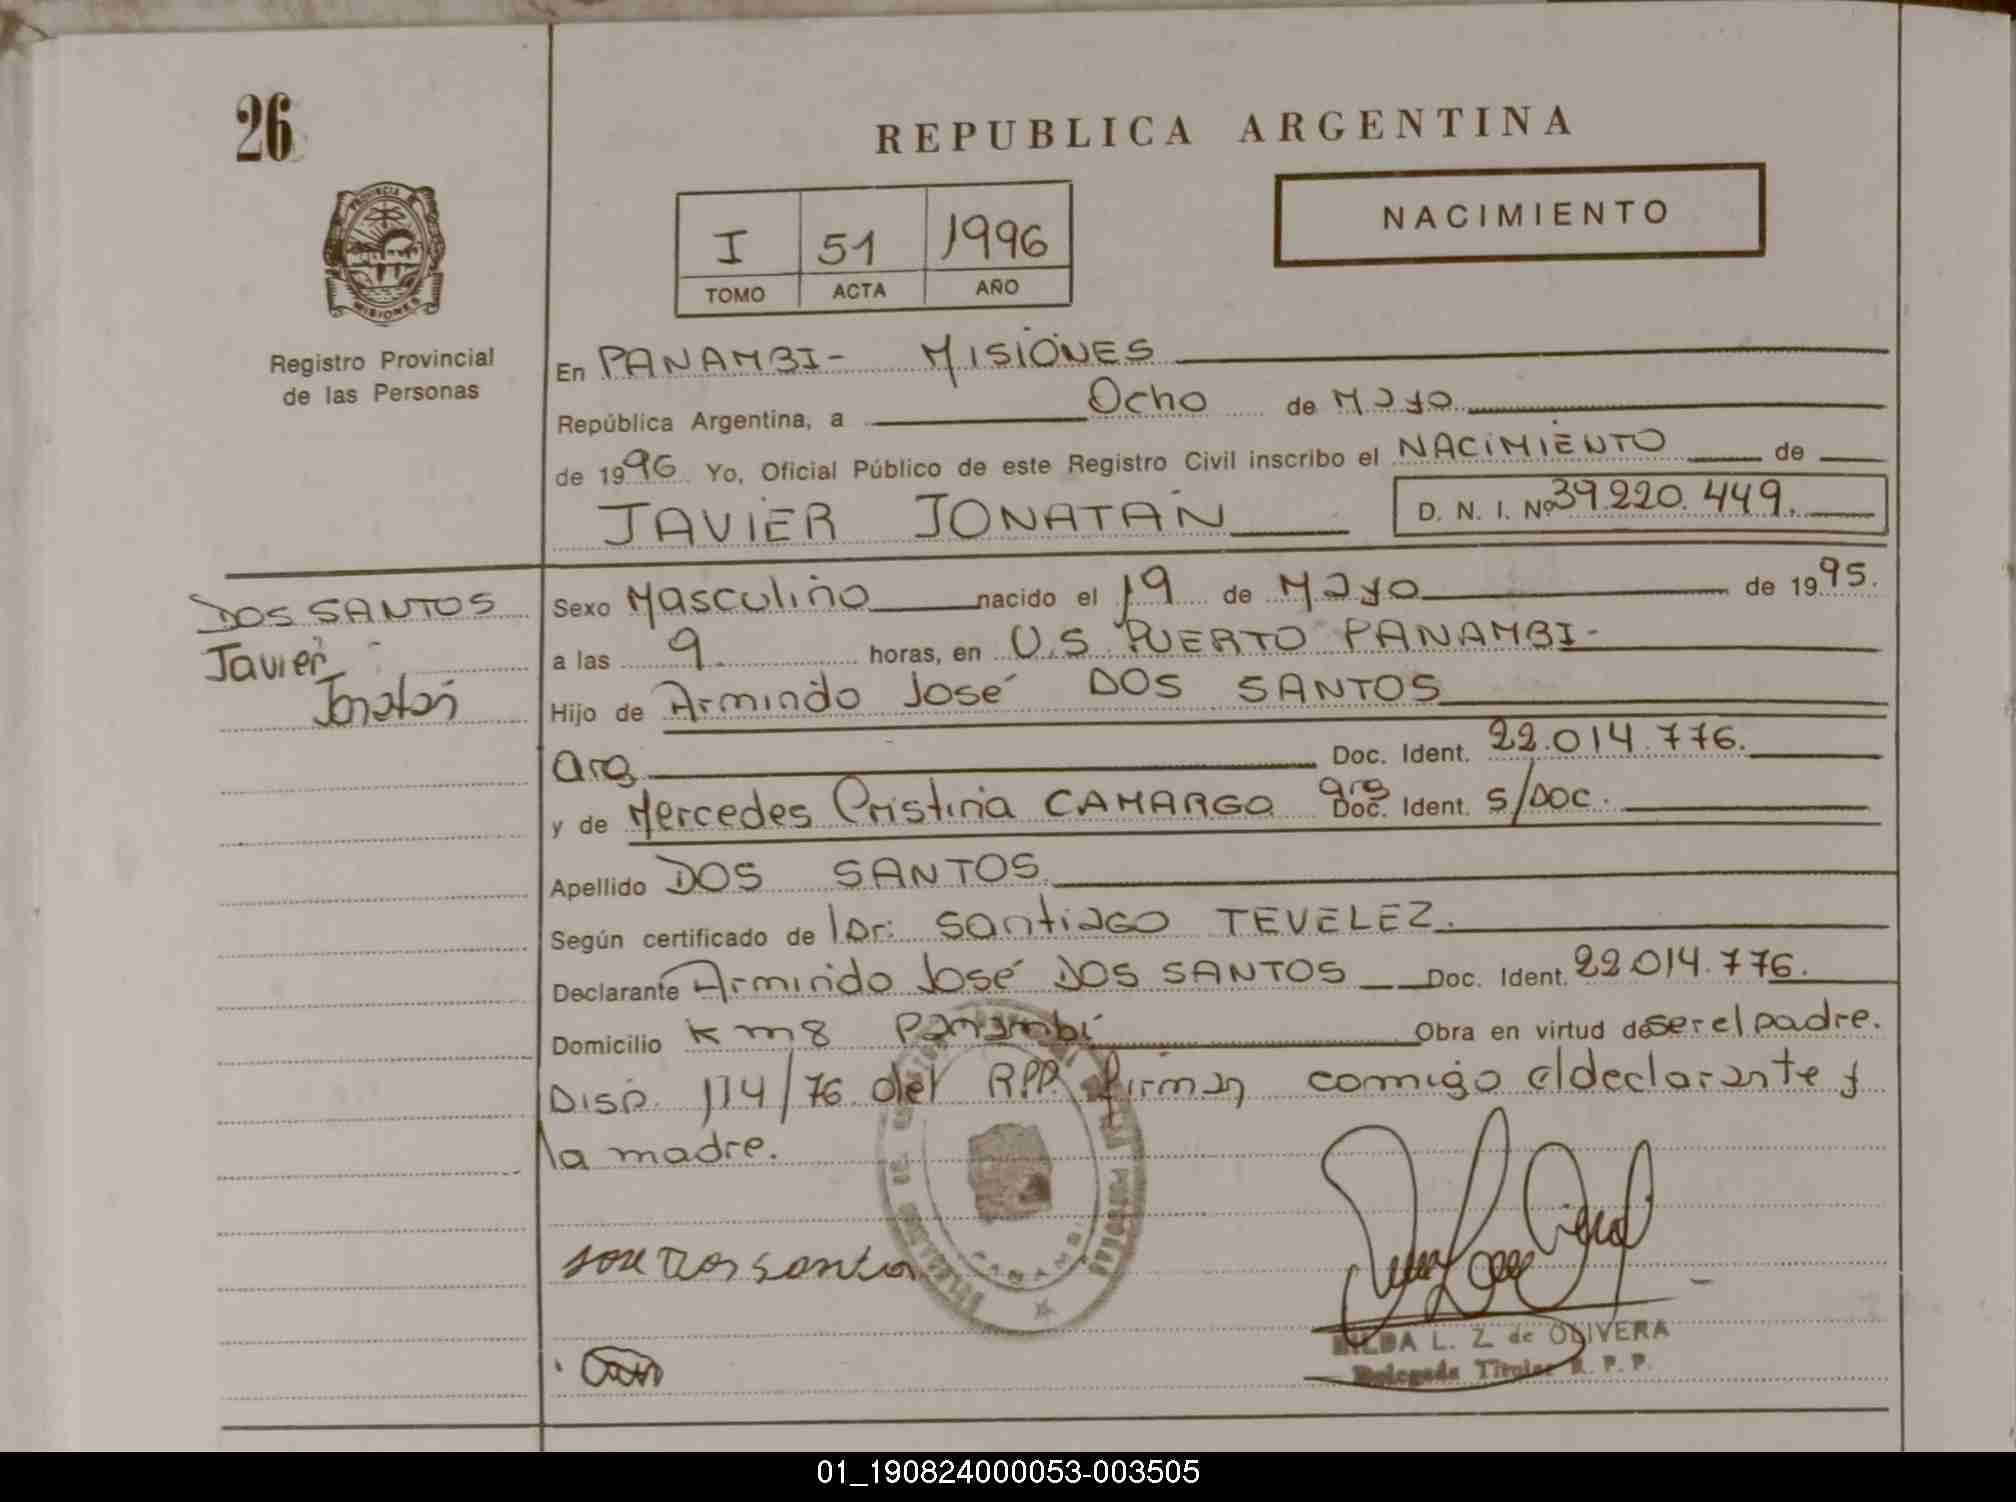 26
REPUBLICA ARGENTINA
PROVINCIA DE
MISIONES
I 51 1996
TOMO ACTA AÑO
NACIMIENTO
Registro Provincial
de las Personas
En PANAMBI - MISIONES
República Argentina, a Ocho de Mayo
de 1996 Yo, Oficial Público de este Registro Civil inscribo el NACIMIENTO de
JAVIER JONATAN D. N. I. Nº 39.220.449.
DOS SANTOS
Javier
Jonatan
Sexo Masculino nacido el 19 de Mayo de 1995.
a las 9 horas, en U.S PUERTO PANAMBI-
Hijo de Armindo José DOS SANTOS
arg Doc. Ident. 22.014.776.
y de Mercedes Cristina CAMARGO arg Doc. Ident. S/DOC.
Apellido DOS SANTOS.
Según certificado de Dr: Santiago TEVELEZ.
Declarante Armindo José DOS SANTOS Doc. Ident. 22.014.776.
Domicilio Km 8 Panambí Obra en virtud de ser el padre.
Disp. 114/76 del R.P.P. firman comigo el declarante y
la madre.
PANAMBI
Jose Dos Santos
HILDA L. Z. de OLIVERA
Delegada Titular R. P. P.
01_190824000053-003505